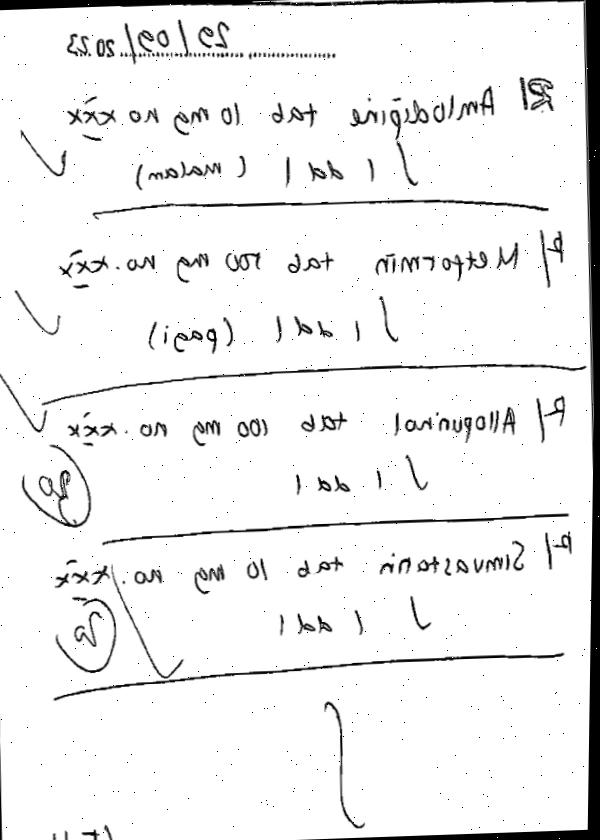 29/09/2023
R/ Amlodipine tab 10 mg no xxx
ʃ 1 dd 1 (malam)
R/ Metformin tab 500 mg no. xxx
ʃ 1 dd 1 (pagi)
R/ Allopurinol tab 100 mg no. xxx
ʃ 1 dd 1
R/ Simvastatin tab 10 mg no. xxx
ʃ 1 dd 1